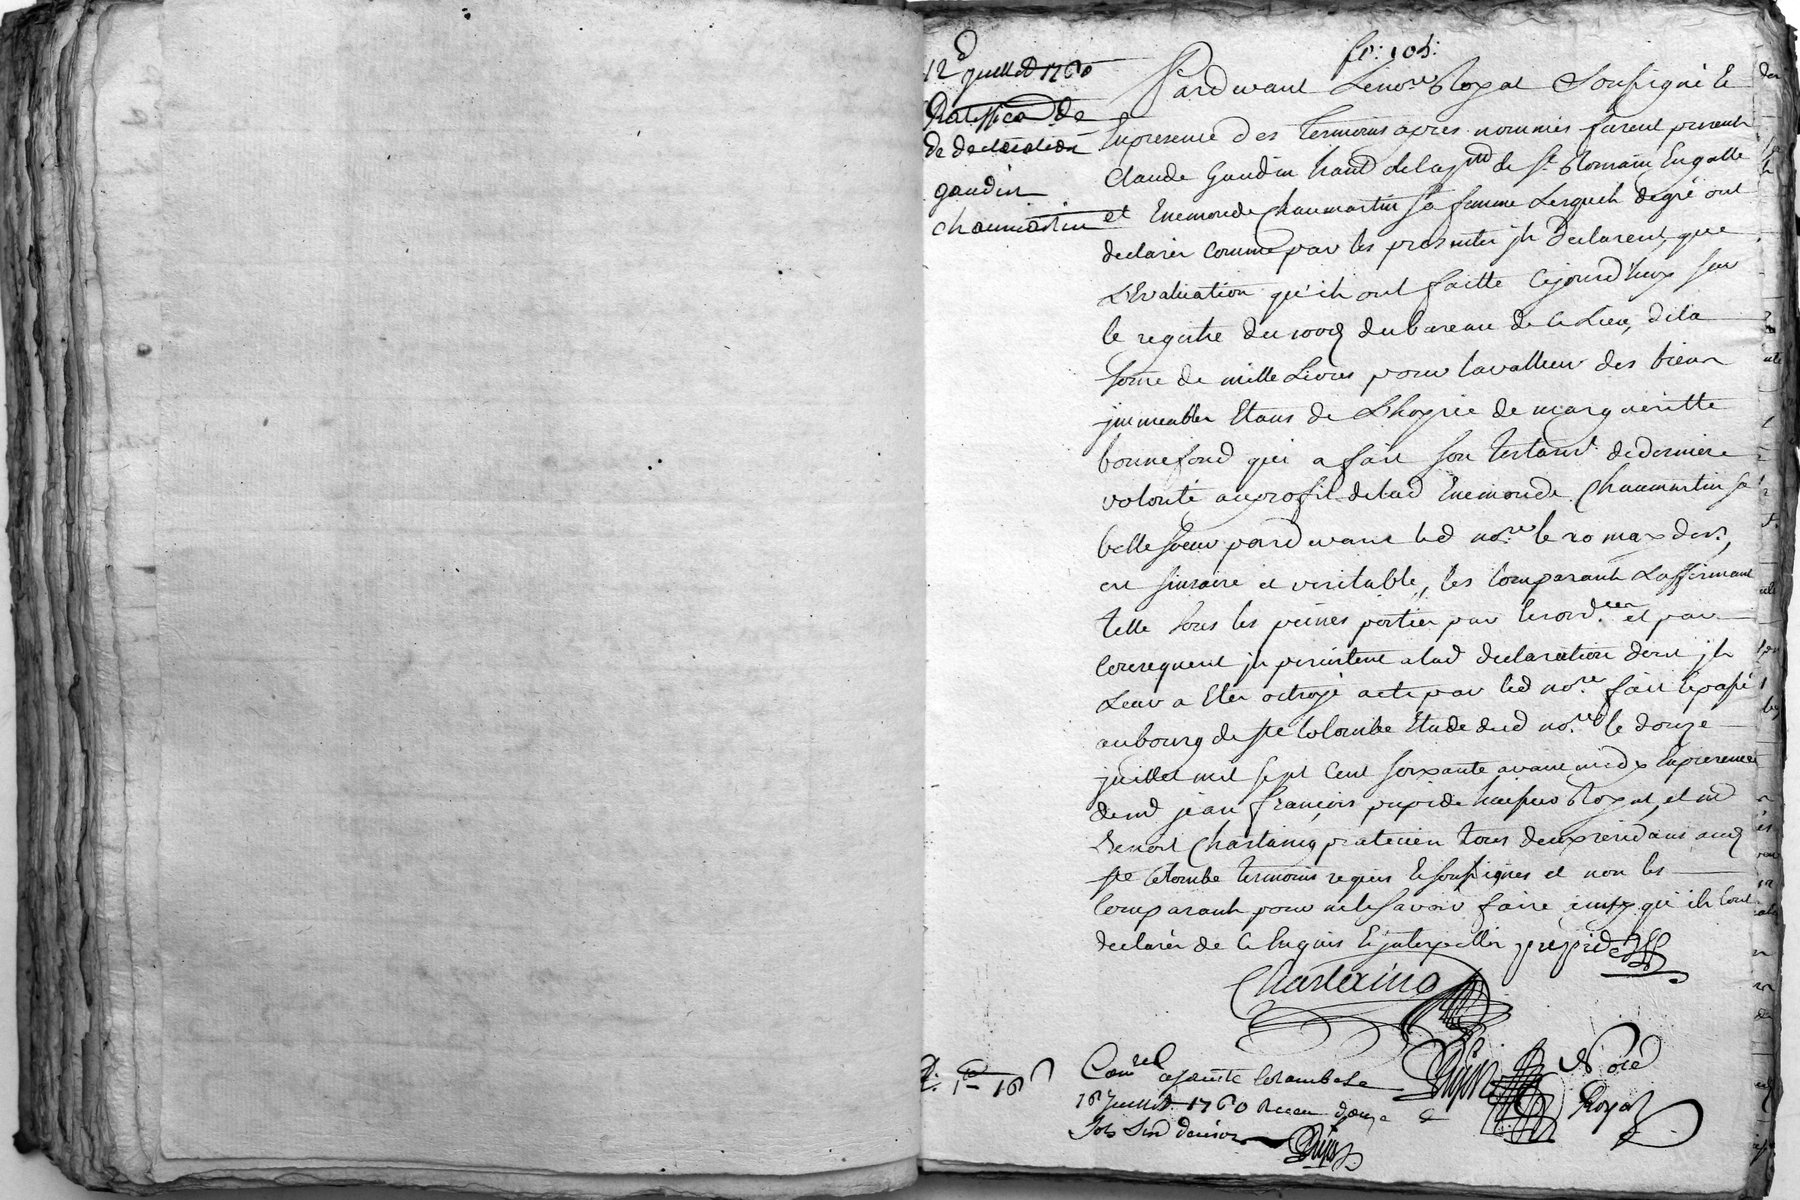 fo: 105:
12 juillet 1760
Ratiffica~ de
de declaration
gaudin
chaumartin
Pardevant Le no.re Royal Soussigné Et
En presence des temoins apres nommés furent present
Claude Gaudin habit de la p. de St Romain En galle
et Enemonde Chaumartin sa femme Lesquels de gré ont
declarér comme par les presentes jls declarent, que
L'Evaluation qu'ils ont faitte Cejourd'huy sur
le registre du du bureau de Ce Lieu, de la
some de mille Livres pour la valleur des biens
jmmeubles Etans de L'hoyrie de margueritte
bonnefond qui a fait son testam.t de derniere
volonté au profit de lad Enemonde Chaumartin sa
belle soeur pardevant led no.re le 20 may der.,
est sinsaire et veritable, les Comparants L'affirmant
telle sous les peines portées par les ord.ces et par
Consequent jls persistent a lad declaration dont jls
Leur a Eté octroyé acte par led no.re fait Et passé
au bourg de Ste Colombe Etude dud no.re le douze
juillet mil sept Cent soixante avant midy En presence
de jean françois pupide huissier Royal, et
Benoit Chastaing praticien tous deux residans aud
Ste Colombe temoins requis Et soussignés et non les
Comparants pour ne le savoir faire ainsy qu'ils l'ont
declarér de Ce Enquis Et jnterpellés pupide
Chastaing
No.re
Royal
Con.lé a Sainte Colombe Le
16 juillet 1760 Receu douze
sols Six deniers